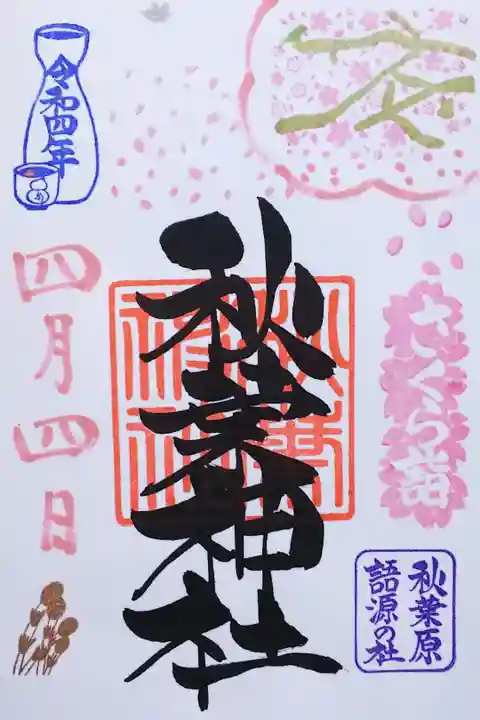 さくら詣
秋葉原
語源の社
秋葉神社
令和四年
四月四日